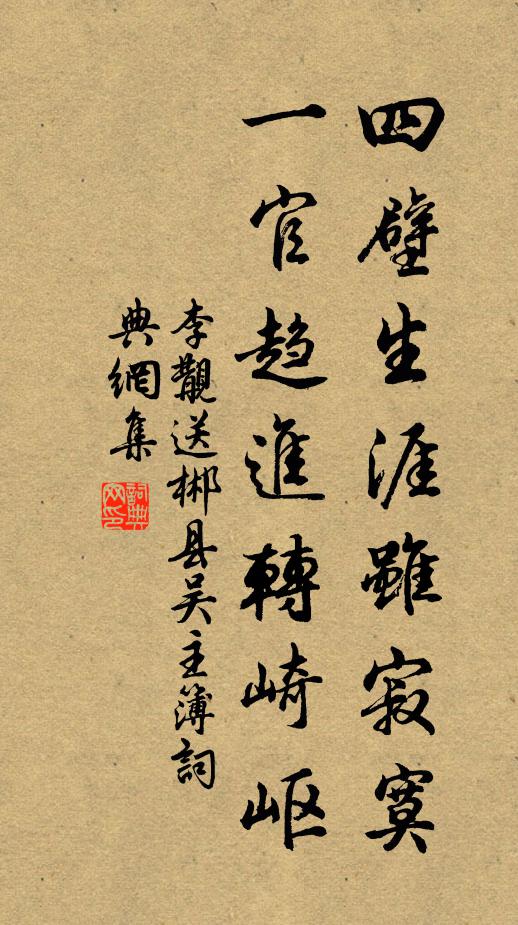 四壁生涯雖寂寞
一官趋進轉崎岖
李觀送郴县吴主簿詞
典網集
詞典
网印